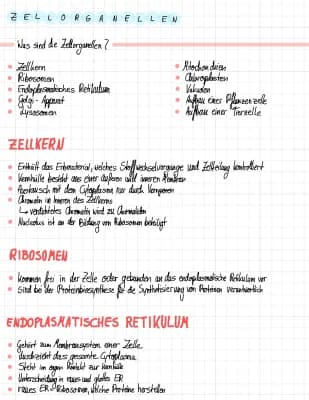 ZELLORGANELLEN
Was sind die Zellorganellen?
• Zellkern
• Ribosomen
• Endoplasmatisches Retikulum
• Golgi-Apparat
• Lysosomen
• Mitochondrien
• Chloroplasten
• Vakuolen
• Aufbau einer Pflanzenzelle
• Aufbau einer Tierzelle
ZELLKERN
• Enthält das Erbmaterial, welches Stoffwechselvorgänge und Zellteilung kontrolliert
• Kernhülle besteht aus einer äußeren und inneren Membran
• Austausch mit dem Cytoplasma nur durch Kernporen
• Chromatin im Inneren des Zellkerns
↳ verdichtetes Chromatin wird zu Chromatiden
• Nucleolus ist an der Bildung von Ribosomen beteiligt
RIBOSOMEN
• Kommen frei in der Zelle oder gebunden an das endoplasmatische Retikulum vor
• Sind bei der Proteinbiosynthese für die Synthetisierung von Proteinen verantwortlich
ENDOPLASMATISCHES RETIKULUM
• Gehört zum Membransystem einer Zelle
• durchzieht das gesamte Cytoplasma
• Steht im engen Kontakt zur Kernhülle
• Unterscheidung in raues und glattes ER
• raues ER = Ribosomen, welche Proteine herstellen